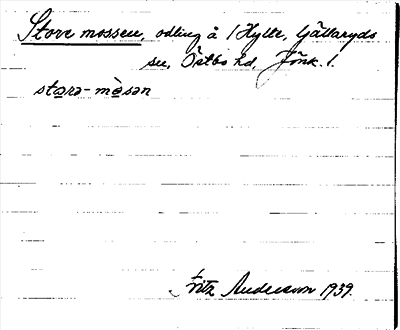 Store mossen, odling å 1 Hylte, Gällaryds
sn, Östbo hd, Jönk. l.
stₐrə-mo̊sən
Fritz Anderson 1939.